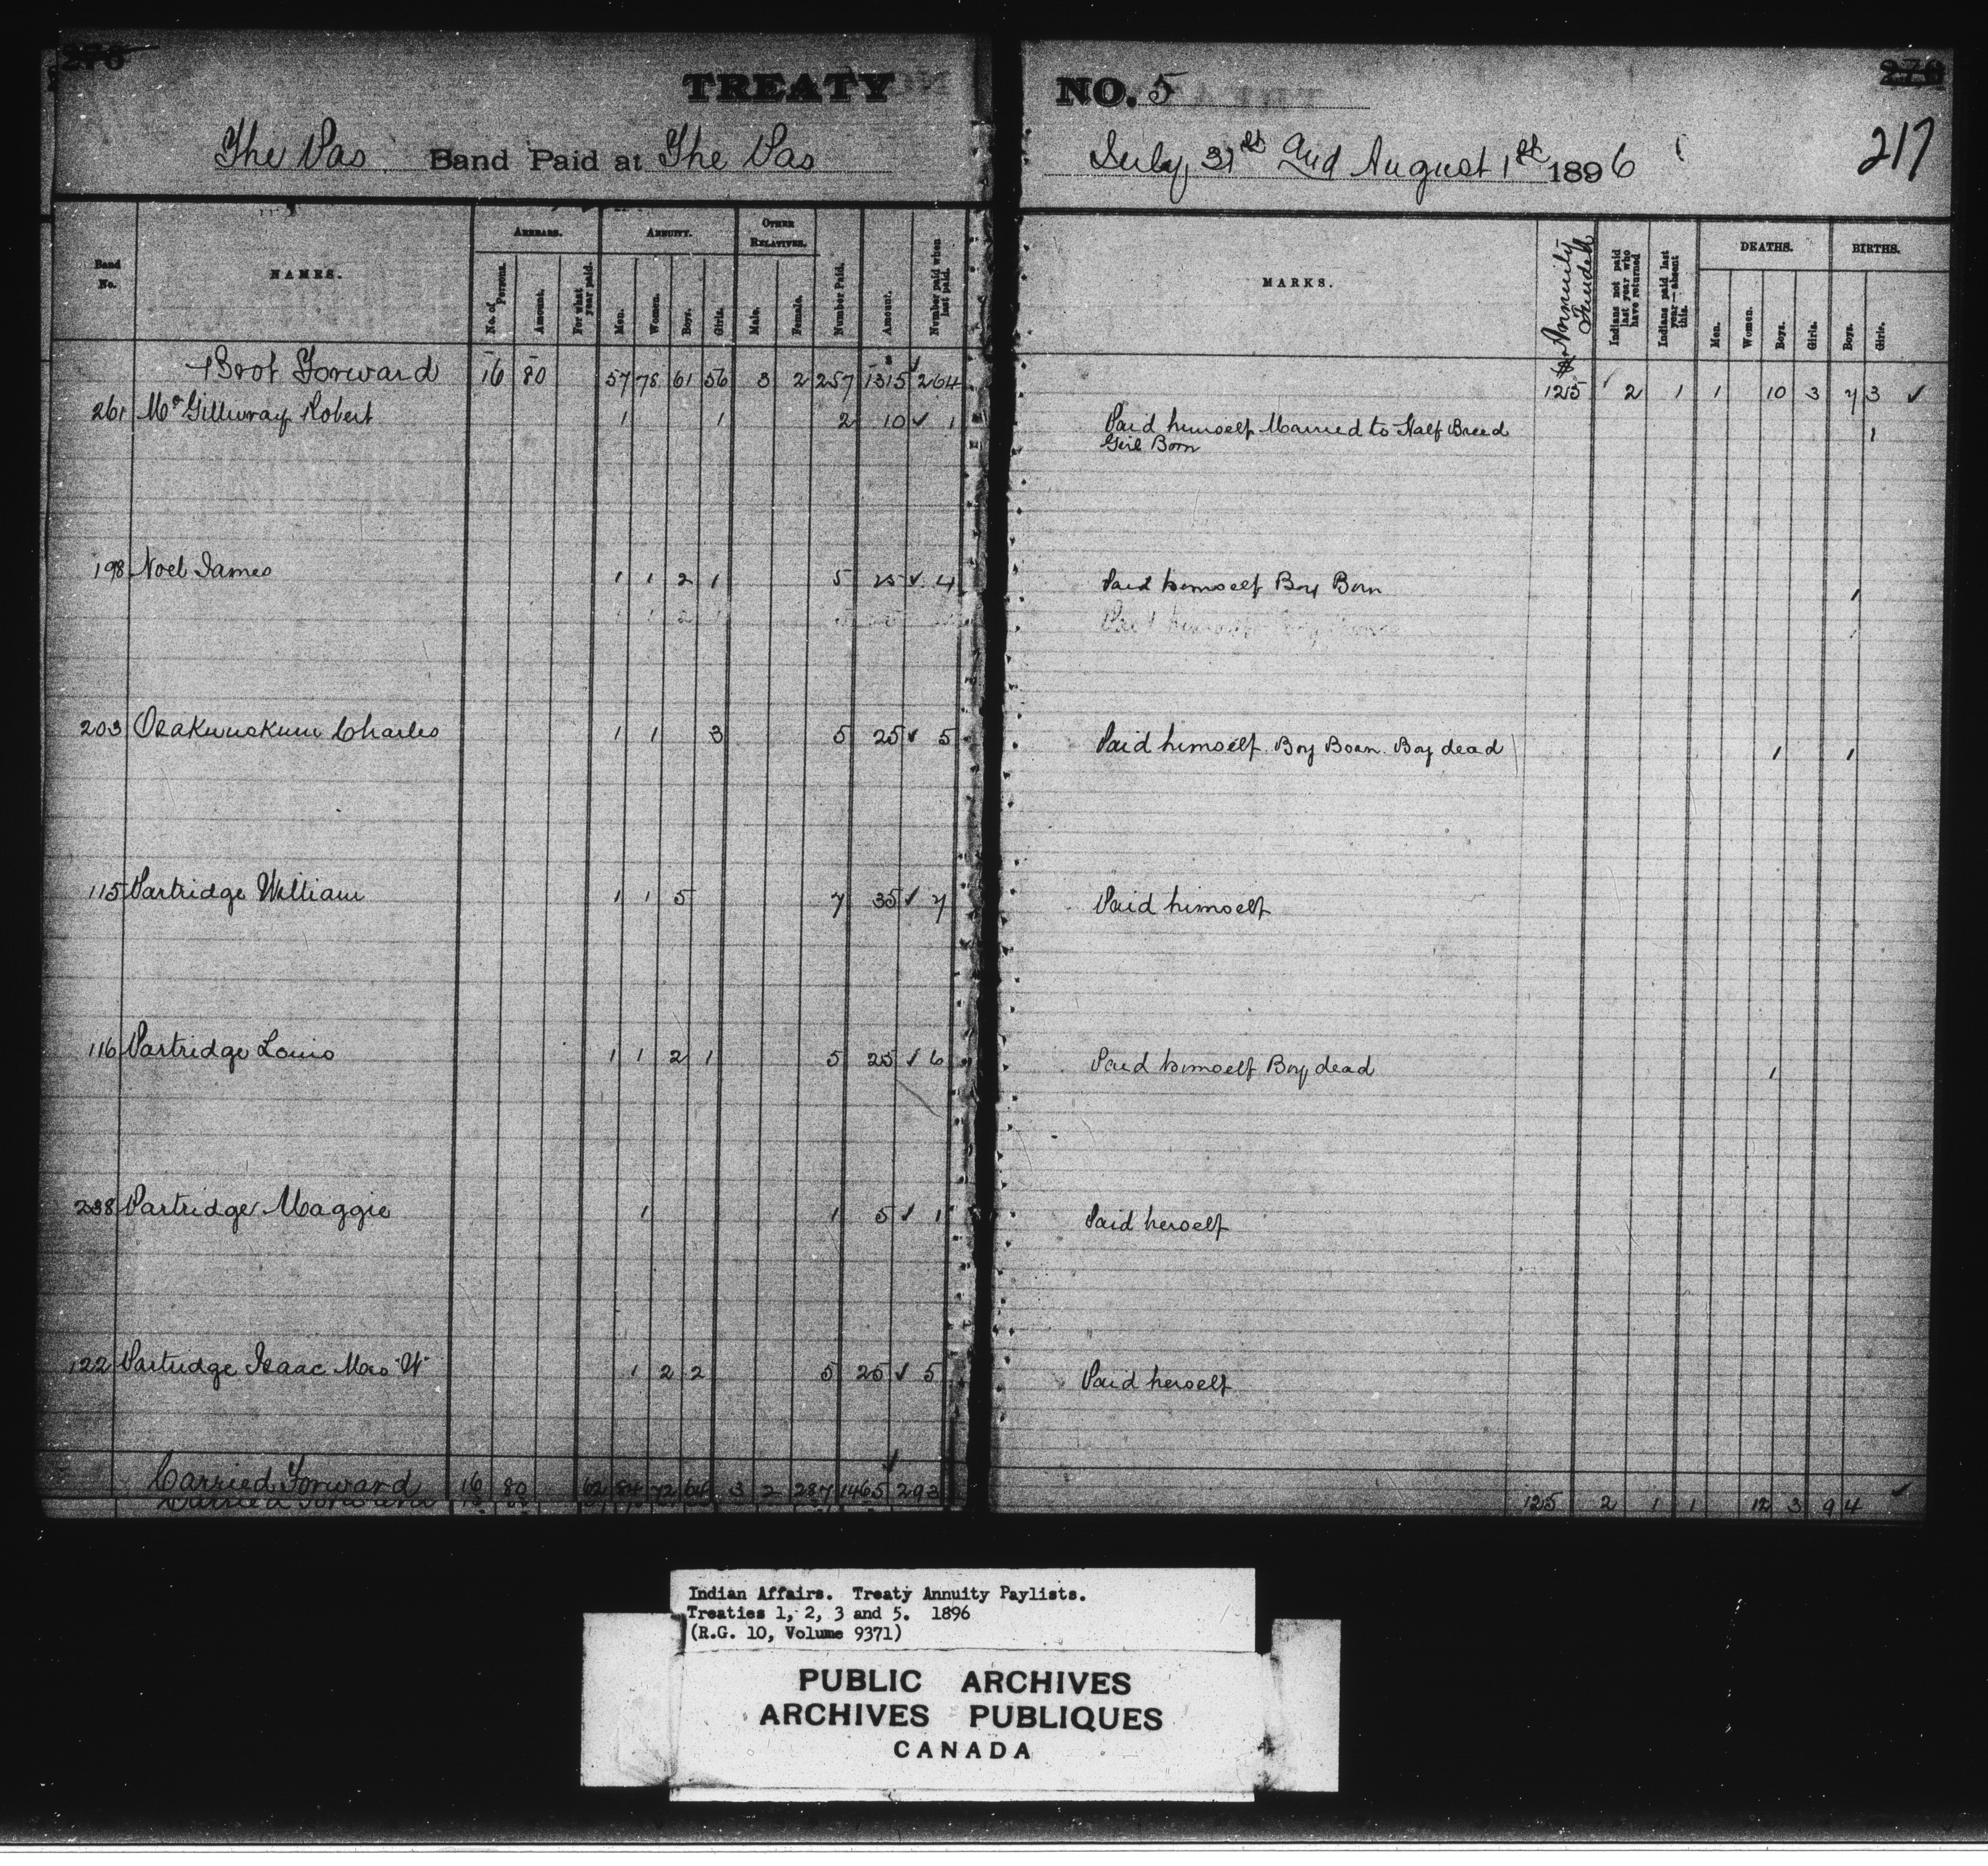 TREATY NO. 5
217
The Pas Band Paid at The Pas July, 31st and August 1st 1896
Band No. NAMES. ARREARS. No. of Persons. Amount. For what year paid. ANNUITY. Men. Women. Boys. Girls. OTHER RELATIVES. Male. Female. Number Paid. Amount. Number paid when last paid. MARKS. Annuity Indians not paid last year who have returned Indians paid last year—absent this. DEATHS. Men. Women. Boys. Girls. BIRTHS. Boys. Girls.
Brot Forward 16 80 57 78 61 56 3 2 257 1315 264 2 1 1 10 3 7 3
261 McGillivray Robert 1 1 2 10 1 Paid himself Married to Half Breed 1
Girl Born
198 Noel James 1 1 2 1 5 25 4 Paid himself Boy Born 1
203 Charles 1 1 3 5 25 5 Paid himself. Boy Born. Boy dead 1 1
115 Partridge William 1 1 5 7 35 7 Paid himself
116 Partridge Louis 1 1 2 1 5 25 6 Paid himself Boy dead 1
238 Partridge Maggie 1 1 5 1 Paid herself
122 Partridge Isaac Mrs W 1 2 2 5 25 5 Paid herself
Carried Forward 16 80 62 84 72 64 3 2 287 1465 293 125 2 1 1 12 3 9 4
Indian Affairs. Treaty Annuity Paylists.
Treaties 1, 2, 3 and 5. 1896
(R.G. 10, Volume 9371)
PUBLIC ARCHIVES
ARCHIVES PUBLIQUES
CANADA